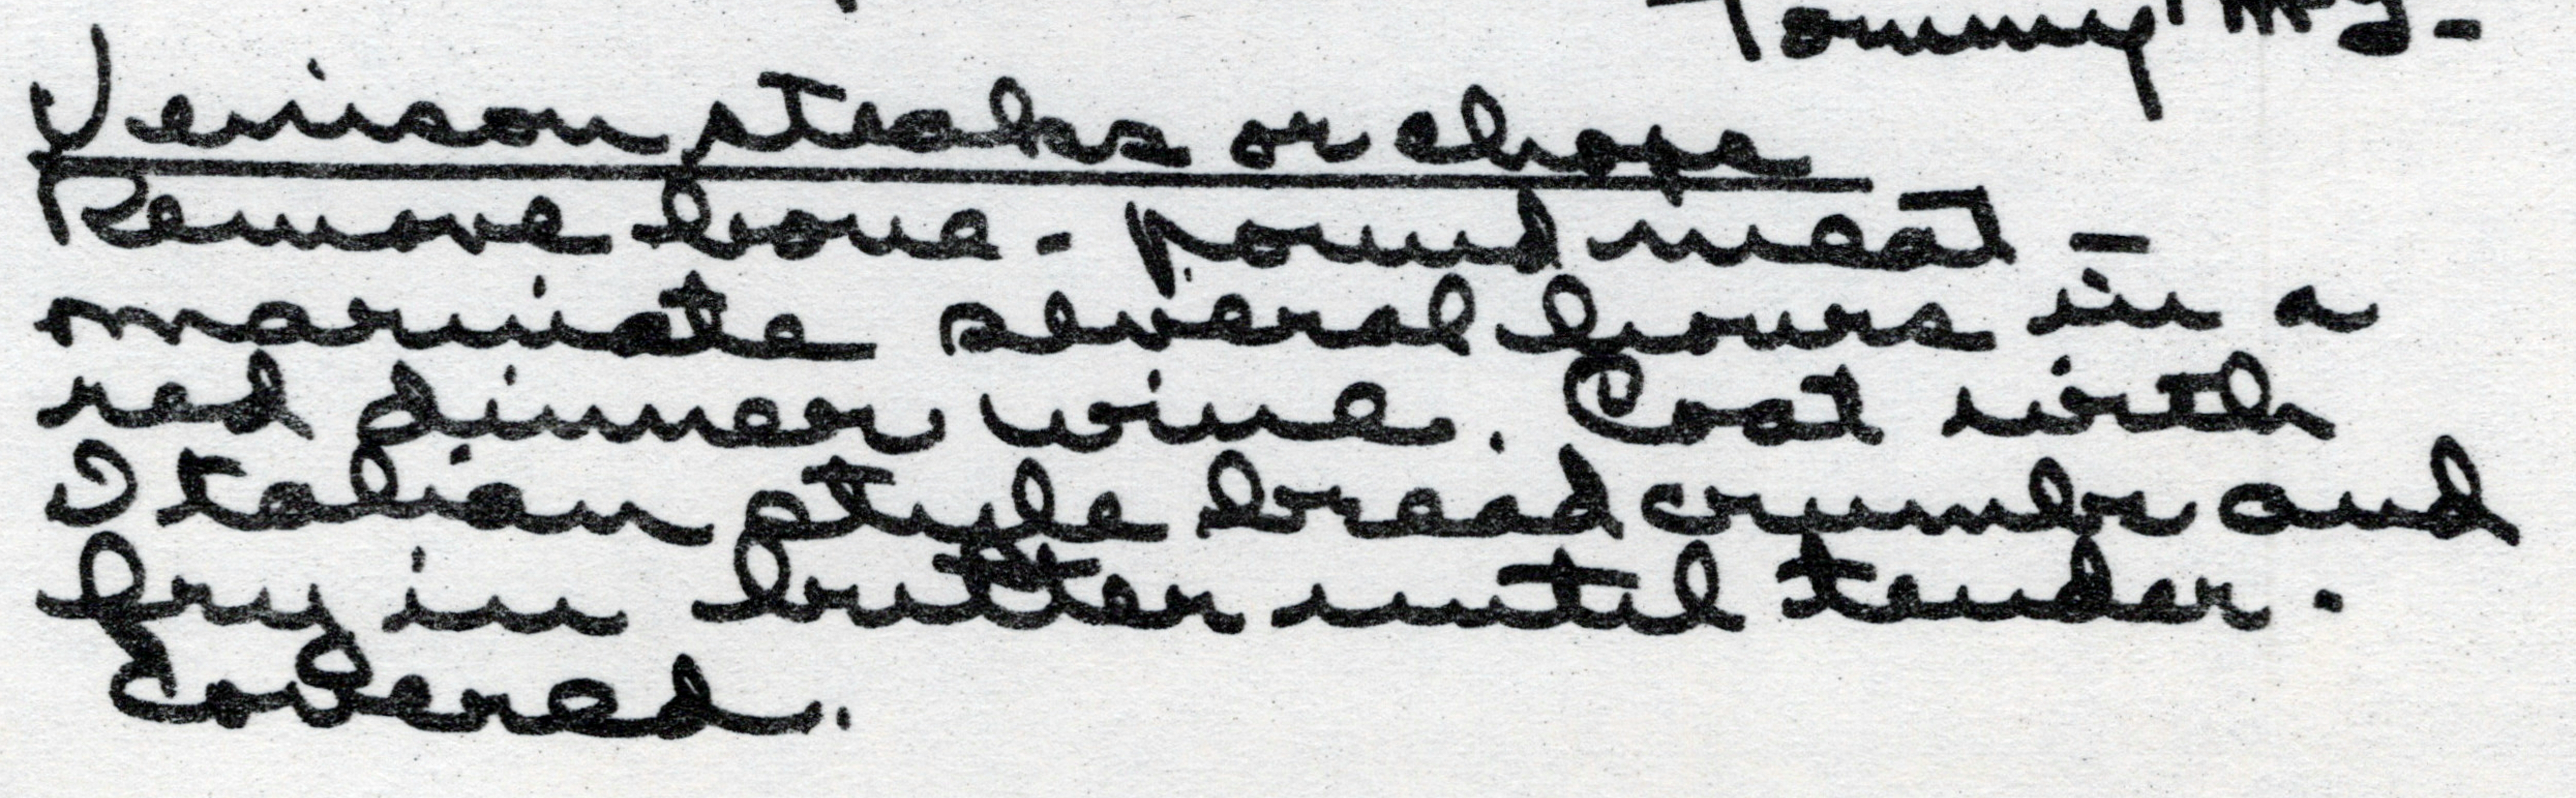 Tommy
Venison steaks or chops
Remove bone - pound meat -
marinate several hours in a
red dinner wine. Coat with
Italian style bread crumbs and
fry in butter until tender.
Covered.